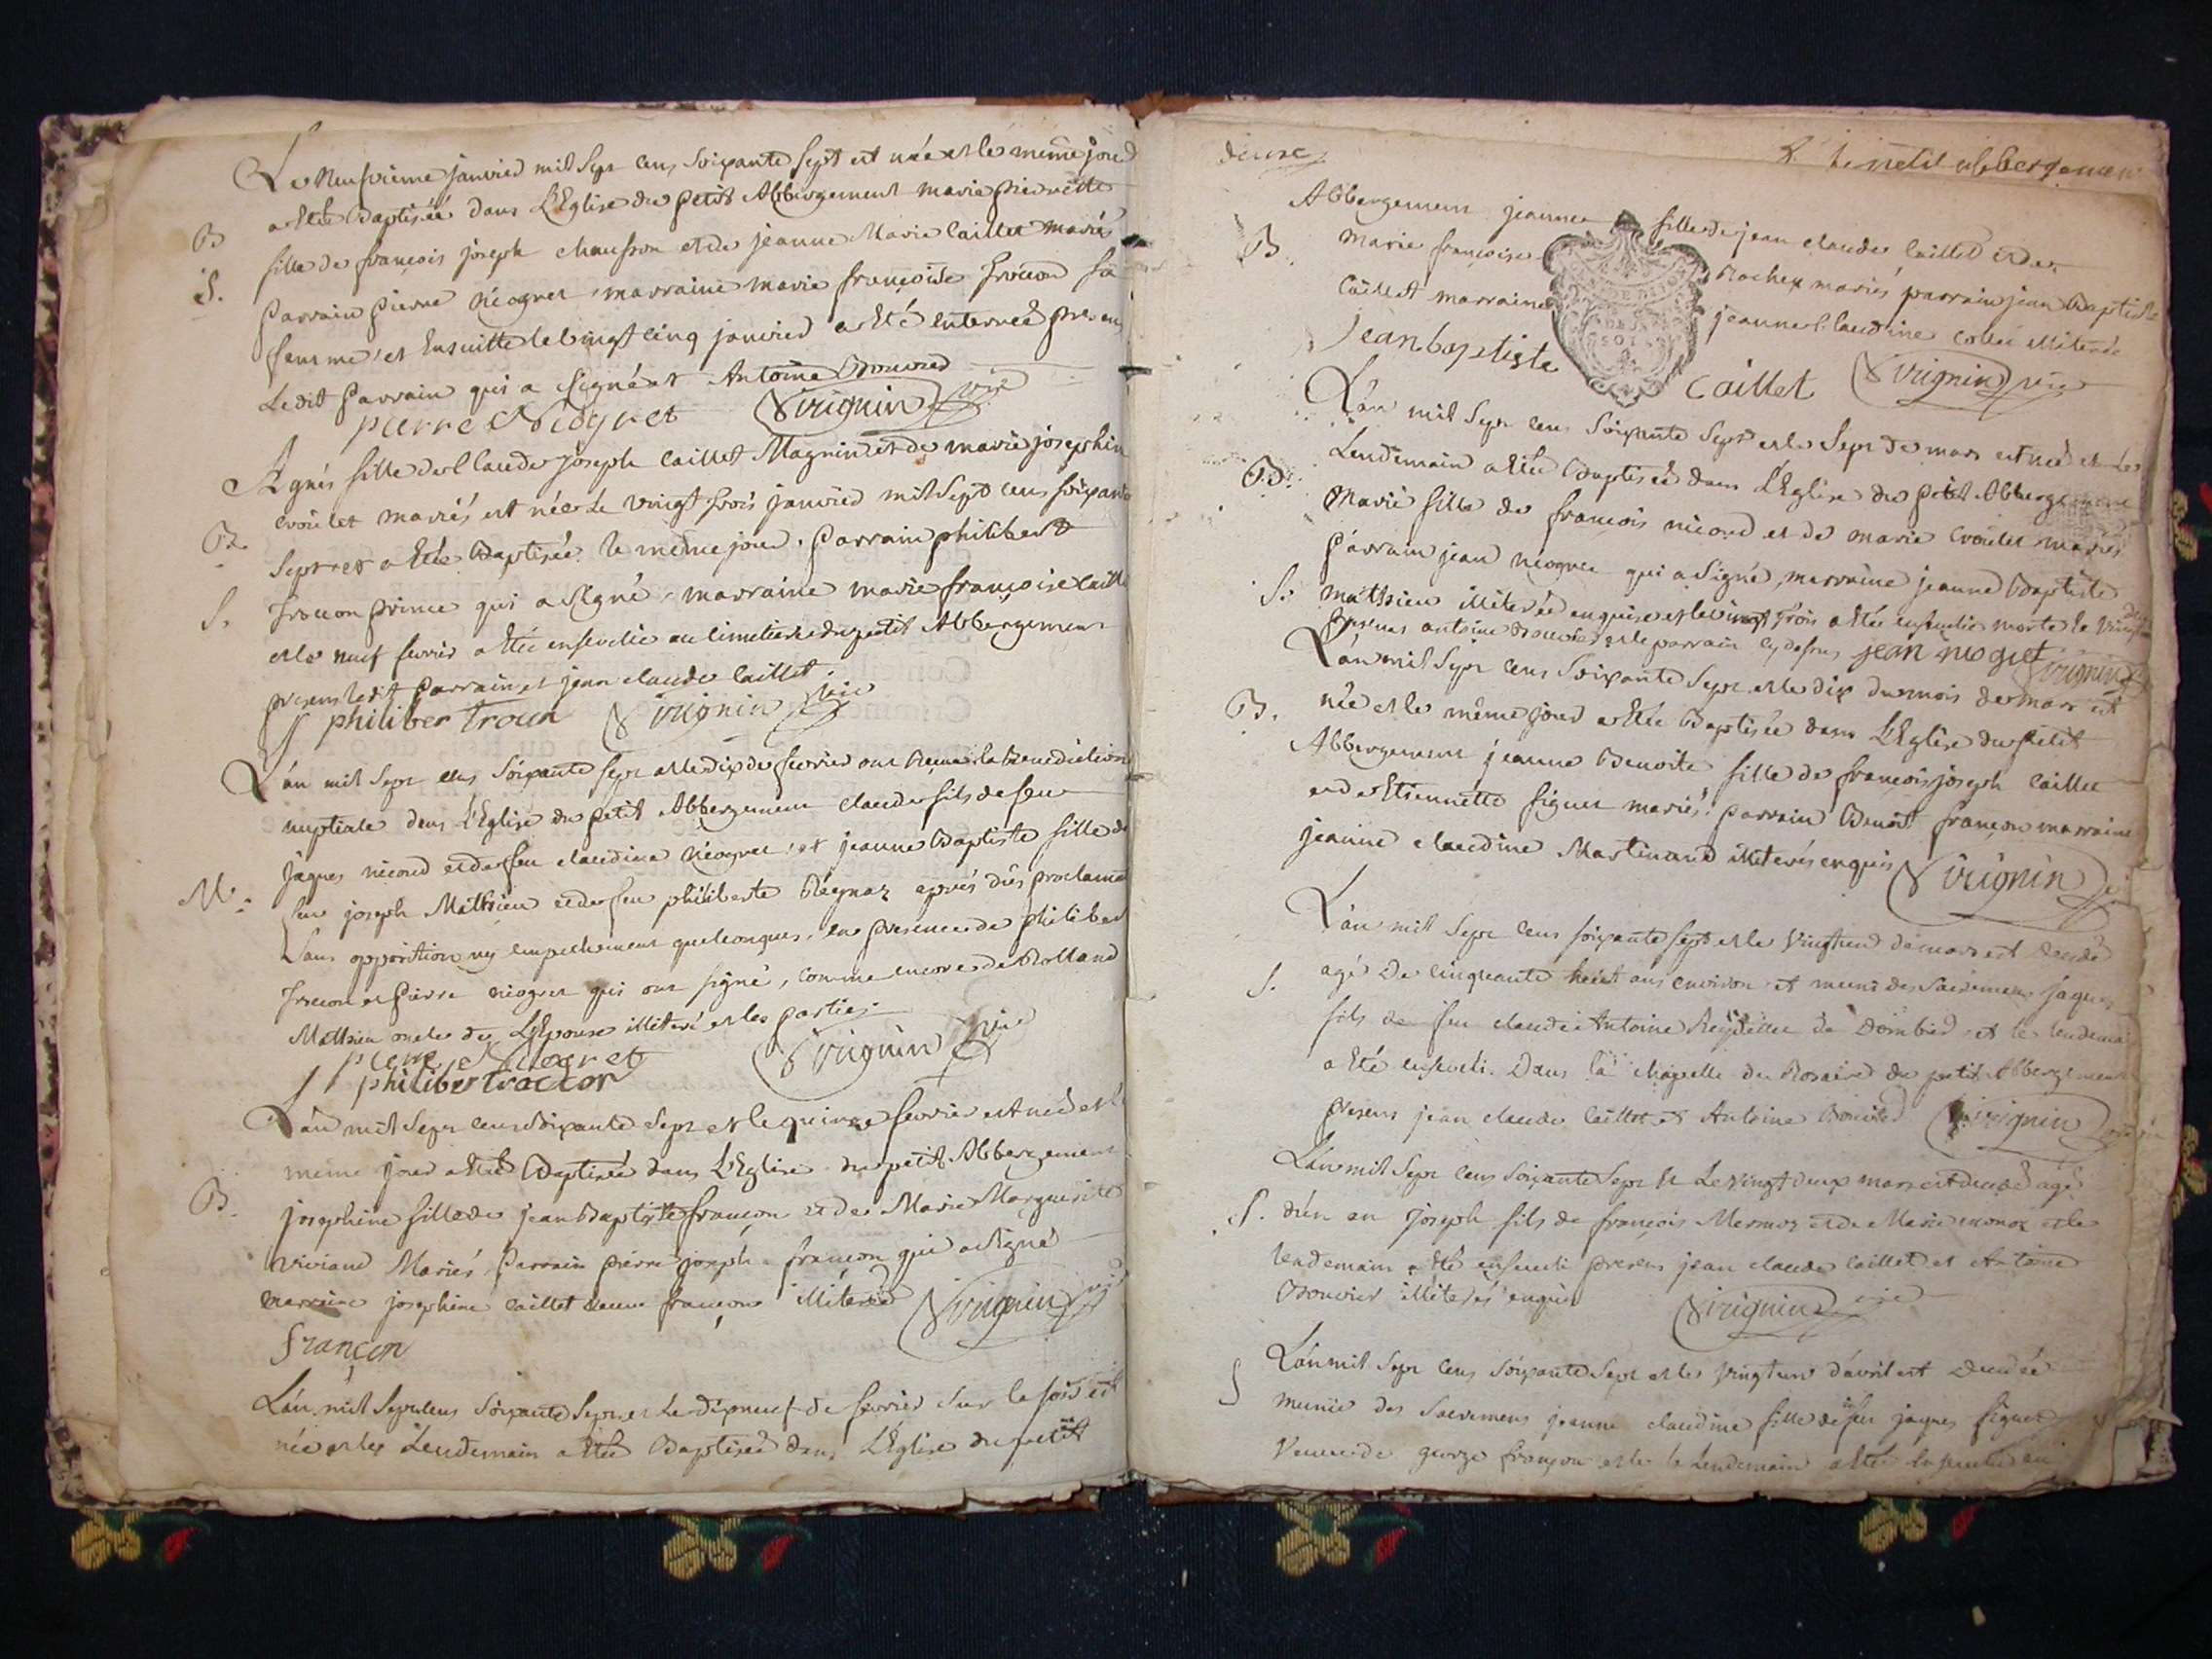 Le neufvieme janvier mil sept cens soixante sept est née et le meme jour
a Eté Baptisée dans L'Eglise du petit Abbergement marie pierrette
B
fille de françois joseph chausson et de jeanne Marie Caillet mariés
S.
Parrain Pierre Niogret marraine marie françoise Trocon sa
femme et Ensuitte le vingt cinq janvier a Eté enterrée presens
Ledit Parrain qui a signé et Antoine Bouvier
pierre Niogret Sirignin vic
Agnès fille de Claude joseph Caillet Magnin et de marie josephine
Croulet mariés est née le vingt trois janvier mil sept cens soixante
B.
Sept et a Eté Baptisée le meme jour. Parrain philibert
S.
Trocon prince qui a signé, marraine marie françoise caillet
et le neuf fevrier a Eté ensevelie au Cimetiere du petit Abbergement
presens ledit Parrain et jean claude Caillet.
philiber trocon Sirignin vic
L'an mil sept cens soixante sept et le dix de fevrier ont Reçu la benediction
nuptiale dans L'Eglise du petit Abbergement claude fils de feu
jaques nicord et de feu claudine Niogret et jeanne Baptiste fille de
M.
feu joseph Mathieu et de feu philiberte Reynaz après dûs proclama
Sans opposition ny empechement quelconques, en presence de philibert
Trocon et Pierre niogret qui ont signé, comme encore de Rolland
Mathieu oncle de L'Epouse illiteré et les parties.
pierre Niogret Sirignin vic
philiber trocon
L'an mil sept cens soixante sept et le quinze fevrier est née et le
meme jour a Eté Baptisée dans L'Eglise du petit Abbergement
B.
josephine fille de jean Baptiste françon et de Marie Marguerite
Viviand Mariés Parrain pierre joseph françon qui a signé
marraine josephine caillet veuve françon illiterée Sirignin vic
françon
L'an mil sept cens soixante sept et Le dixneuf de fevrier sur le soir est
née et le Lendemain a Eté Baptisée dans L'Eglise du petit
deuxe
2. le petit abbergement
Abbergement jeanne fille de jean claude caillet et de
B.
Marie françoise Rochex mariés parrain jean Baptiste
Caillet marraine jeanne Claudine illiterée
Jean baptiste Caillet Sirignin vic
L'an mil sept cens soixante sept et le sept de mars est née et le
Lendemain a Eté Baptisée dans L'Eglise du petit Abbergement
B.
Marie fille de françois nicord et de marie Croulet mariés
Parrain jean niogret qui a signé, marraine jeanne Baptiste
S.
mathieu illiterée enquise et le vingt trois a Eté ensevelie morte le vingt deux
presens antoine Bouvier et le parrain cy dessus jean niogret Sirignin
L'an mil sept cens soixante sept et le dix du mois de mars est
née et le même jour a Eté Baptisée dans L'Eglise du petit
B.
Abbergement jeanne Benoite fille de françois joseph Caillet
et de Etiennette figuet mariés. parrain Benoit françon marraine
jeanne claudine Martinand illiterés enquis Sirignin
L'an mil sept cens soixante sept et le vingt un de mars est decedé
S.
agé de cinquante huit ans environ et muni des Sacremens jaques
fils de feu claude Antoine Reydellet de Dombied et le lendemain
a Eté enseveli Dans la chapelle du Rosaire du petit Abbergement
presens jean claude Caillet et Antoine Bouvier Sirignin vic
L'an mil sept cens soixante sept et Le vingt deux mars est decedé agé
S.
d'un an joseph fils de françois Mermoz et de Marie et le
lendemain a Eté enseveli presens jean claude Caillet et Antoine
Bouvier illiterés enquis Sirignin vic
L'an mil sept cens soixante sept et le vingt un d'avril est decedée
S
munie des Sacremens jeanne claudine fille de feu jaques figuet
Veuve de george françon et le lendemain a Eté ensevelie